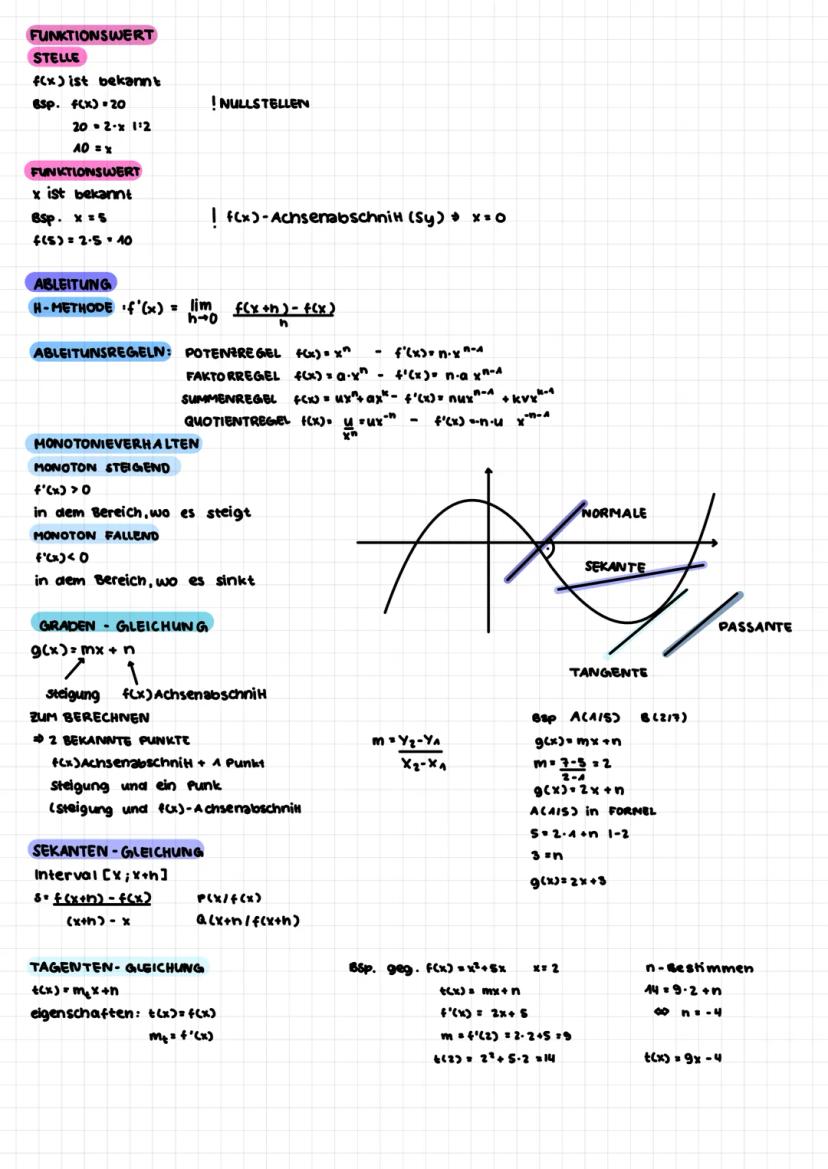 FUNKTIONSWERT
STELLE
f(x) ist bekannt
Bsp. f(x) = 20 ! NULLSTELLEN
20 = 2·x |:2
10 = x
FUNKTIONSWERT
x ist bekannt
Bsp. x = 5 ! f(x)-Achsenabschnitt (Sy) → x = 0
f(5) = 2·5 = 10
ABLEITUNG
H-METHODE : f'(x) = lim h→0 f(x+h) - f(x) / h
ABLEITUNSREGELN: POTENZREGEL f(x) = xⁿ - f'(x) = n·xⁿ⁻¹
FAKTORREGEL f(x) = a·xⁿ - f'(x) = n·a xⁿ⁻¹
SUMMENREGEL f(x) = uxⁿ + axᵏ - f'(x) = nuxⁿ⁻¹ + kvxᵏ⁻¹
QUOTIENTREGEL f(x) = u/xⁿ = ux⁻ⁿ - f'(x) = -n·u x⁻ⁿ⁻¹
MONOTONIEVERHALTEN
MONOTON STEIGEND
f'(x) > 0
in dem Bereich, wo es steigt
MONOTON FALLEND
f'(x) < 0
in dem Bereich, wo es sinkt
NORMALE
SEKANTE
PASSANTE
TANGENTE
GRADEN - GLEICHUNG
g(x) = mx + n
Steigung f(x) Achsenabschnitt
ZUM BERECHNEN
⇒ 2 BEKANNTE PUNKTE
f(x) Achsenabschnitt + 1 Punkt
Steigung und ein Punk
(Steigung und f(x)-Achsenabschnitt
m = y₂-y₁ / x₂-x₁
Bsp A(1/5) B(2/7)
g(x) = mx + n
m = 7-5 / 2-1 = 2
g(x) = 2x + n
A(1/5) in FORMEL
5 = 2·1 + n |-2
3 = n
g(x) = 2x + 3
SEKANTEN - GLEICHUNG
Interval [x ; x+h]
s = f(x+h) - f(x) / (x+h) - x
P(x/f(x)
Q(x+h/f(x+h)
TAGENTEN - GLEICHUNG
t(x) = mₜx + n
eigenschaften: t(x) = f(x)
mₜ = f'(x)
Bsp. geg. f(x) = x² + 5x x = 2
t(x) = mx + n
f'(x) = 2x + 5
m = f'(2) = 2·2 + 5 = 9
t(2) = 2² + 5·2 = 14
n - Bestimmen
14 = 9·2 + n
⇔ n = -4
t(x) = 9x - 4